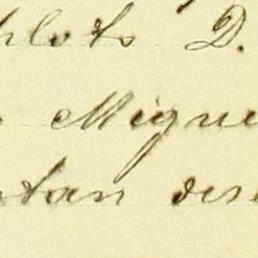 plots D.
Migue
tan des